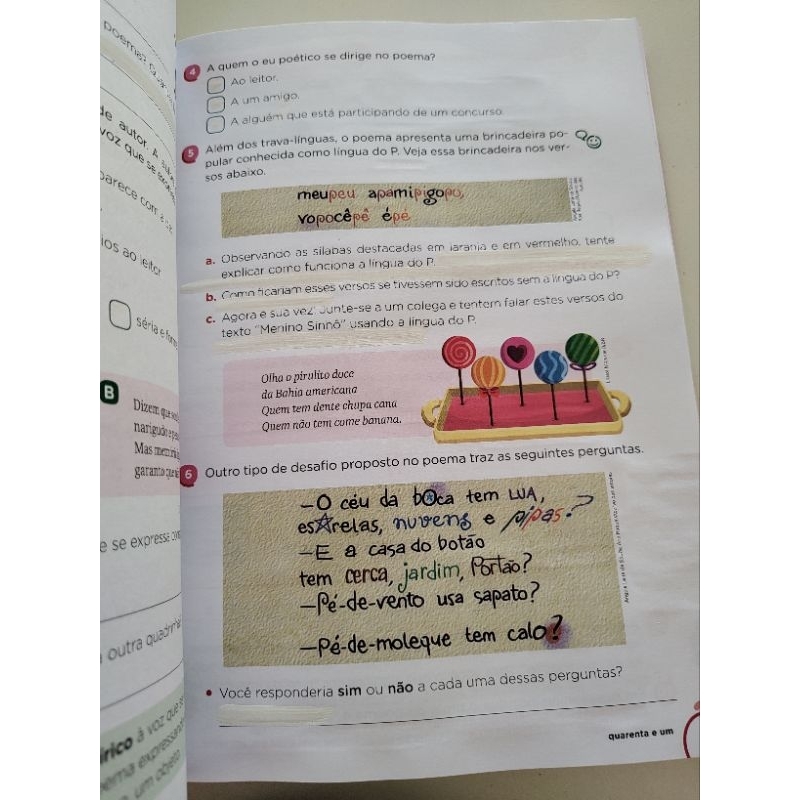 poema?
de autor. A
voz que se
parece com a
ios ao leitor
séria e
B
Dizem que
narigudo e
Mas
garanto que
e se expressa
outra quadrinha
írico à voz que se
ema expressando
um objeto
4 A quem o eu poético se dirige no poema?
Ao leitor.
A um amigo.
A alguém que está participando de um concurso.
5 Além dos trava-línguas, o poema apresenta uma brincadeira po-
pular conhecida como língua do P. Veja essa brincadeira nos ver-
sos abaixo.
meupeu apamipigopo,
vopocêpê épé
a. Observando as sílabas destacadas em laranja e em vermelho, tente
explicar como funciona a língua do P.
b. Como ficariam esses versos se tivessem sido escritos sem a língua do P?
c. Agora é sua vez! Junte-se a um colega e tentem falar estes versos do
texto "Menino Sinhô" usando a língua do P.
Olha o pirulito doce
da Bahia americana
Quem tem dente chupa cana
Quem não tem come banana.
6 Outro tipo de desafio proposto no poema traz as seguintes perguntas.
—O céu da bOca tem LUA,
es☆relas, nuvens e pipas?
—E a casa do botão
tem cerca, jardim, Portão?
—Pé-de-vento usa sapato?
—Pé-de-moleque tem calo?
• Você responderia sim ou não a cada uma dessas perguntas?
quarenta e um